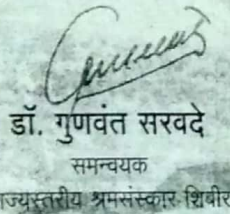 डॉ. गुणवंत सरवदे
समन्वयक
राज्यस्तरीय श्रमसंस्कार शिबीर